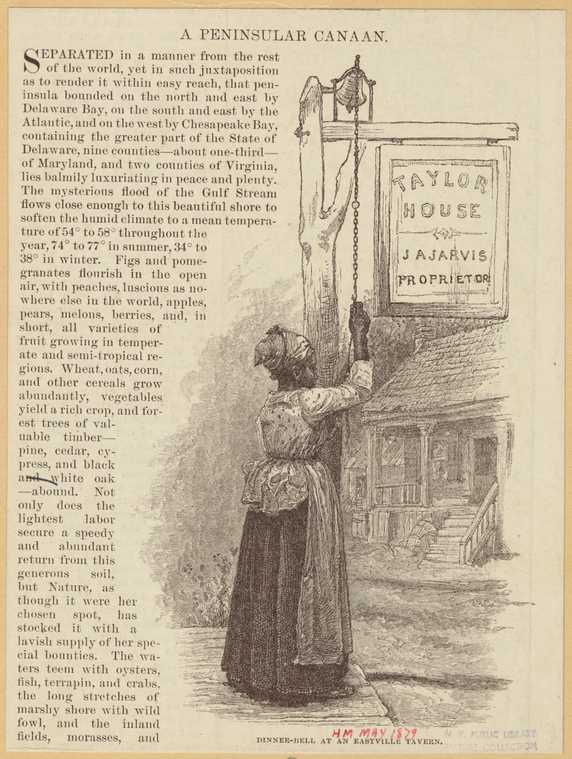 A PENINSULAR CANAAN.
SEPARATED in a manner from the rest
of the world, yet in such juxtaposition
as to render it within easy reach, that pen-
insula bounded on the north and east by
Delaware Bay, on the south and east by the
Atlantic, and on the west by Chesapeake Bay,
containing the greater part of the State of
Delaware, nine counties—about one-third—
of Maryland, and two counties of Virginia,
lies balmily luxuriating in peace and plenty.
The mysterious flood of the Gulf Stream
flows close enough to this beautiful shore to
soften the humid climate to a mean tempera-
ture of 54° to 58° throughout the
year, 74° to 77° in summer, 34° to
38° in winter. Figs and pome-
granates flourish in the open
air, with peaches, luscious as no-
where else in the world, apples,
pears, melons, berries, and, in
short, all varieties of
fruit growing in temper-
ate and semi-tropical re-
gions. Wheat, oats, corn,
and other cereals grow
abundantly, vegetables
yield a rich crop, and for-
est trees of val-
uable timber—
pine, cedar, cy-
press, and black
and white oak
—abound. Not
only does the
lightest labor
secure a speedy
and abundant
return from this
generous soil,
but Nature, as
though it were her
chosen spot, has
stocked it with a
lavish supply of her spe-
cial bounties. The wa-
ters teem with oysters,
fish, terrapin, and crabs,
the long stretches of
marshy shore with wild
fowl, and the inland
fields, morasses, and
TAYLOR
HOUSE
J A JARVIS
PROPRIETOR
HM MAY 1879
DINNER-BELL AT AN EASTVILLE TAVERN.
N. Y. PUBLIC LIBRARY
PICTURE COLLECTION